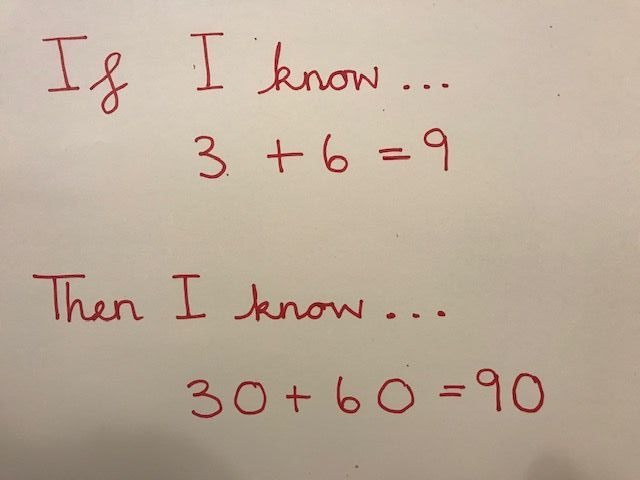 If I know...
3 + 6 = 9
Then I know...
30 + 60 = 90